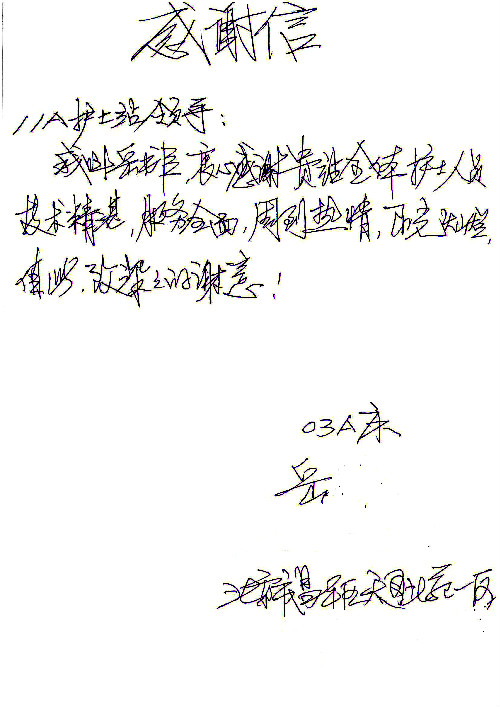 感谢信
11A护士站领导:
衷心感谢贵站全体护士人员
技术精湛,服务全面,周到热情,
值此,致以深深的谢意!
03A床
岳
北京市昌平区天通北苑一区